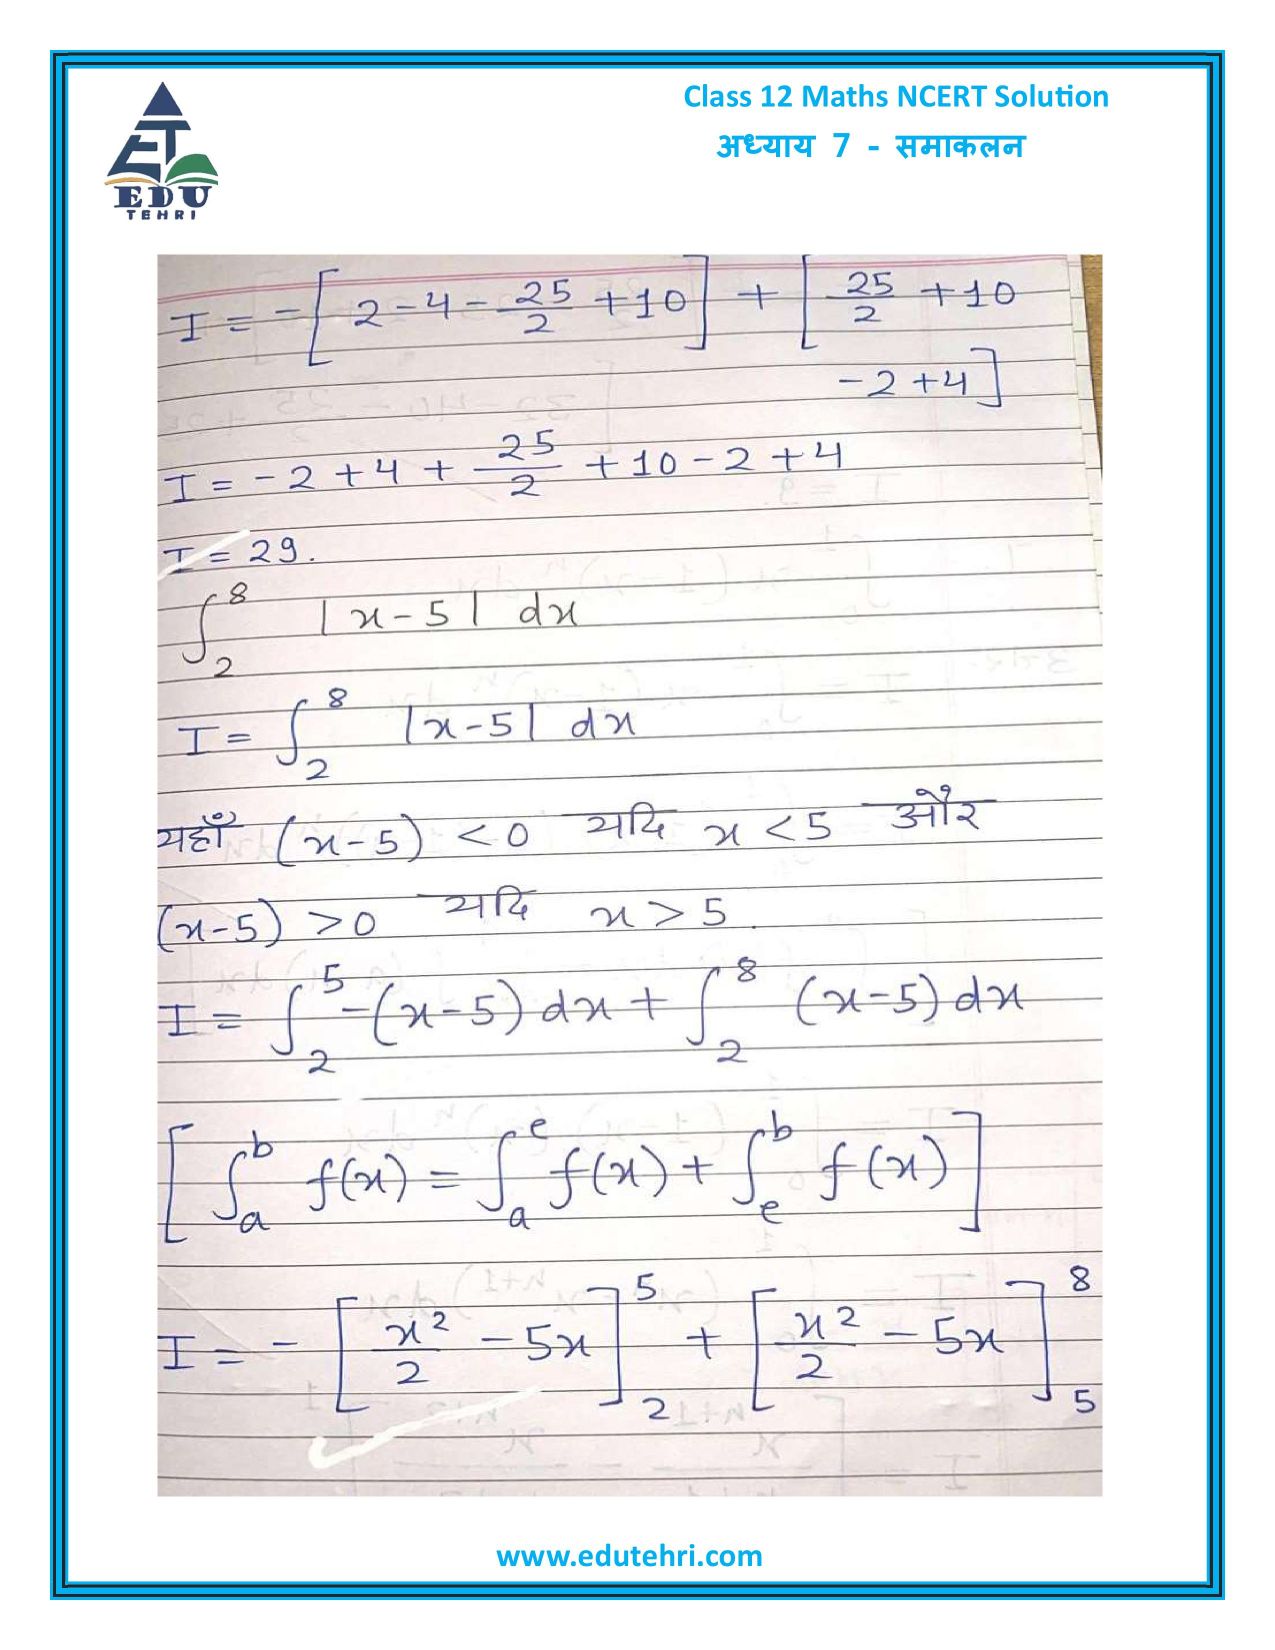 Class 12 Maths NCERT Solution
अध्याय 7 - समाकलन
EDU
TEHRI
I = -[2 - 4 - 25/2 + 10] + [25/2 + 10
- 2 + 4]
I = - 2 + 4 + 25/2 + 10 - 2 + 4
I = 29.
∫₂⁸ |x - 5| dx
I = ∫₂⁸ |x - 5| dx
यहाँ (x - 5) < 0 यदि x < 5 और
(x - 5) > 0 यदि x > 5.
I = ∫₂⁵ -(x - 5) dx + ∫₂⁸ (x - 5) dx
[∫ₐᵇ f(x) = ∫ₐᵉ f(x) + ∫ₑᵇ f(x)]
I = -[x²/2 - 5x]₂⁵ + [x²/2 - 5x]₅⁸
www.edutehri.com